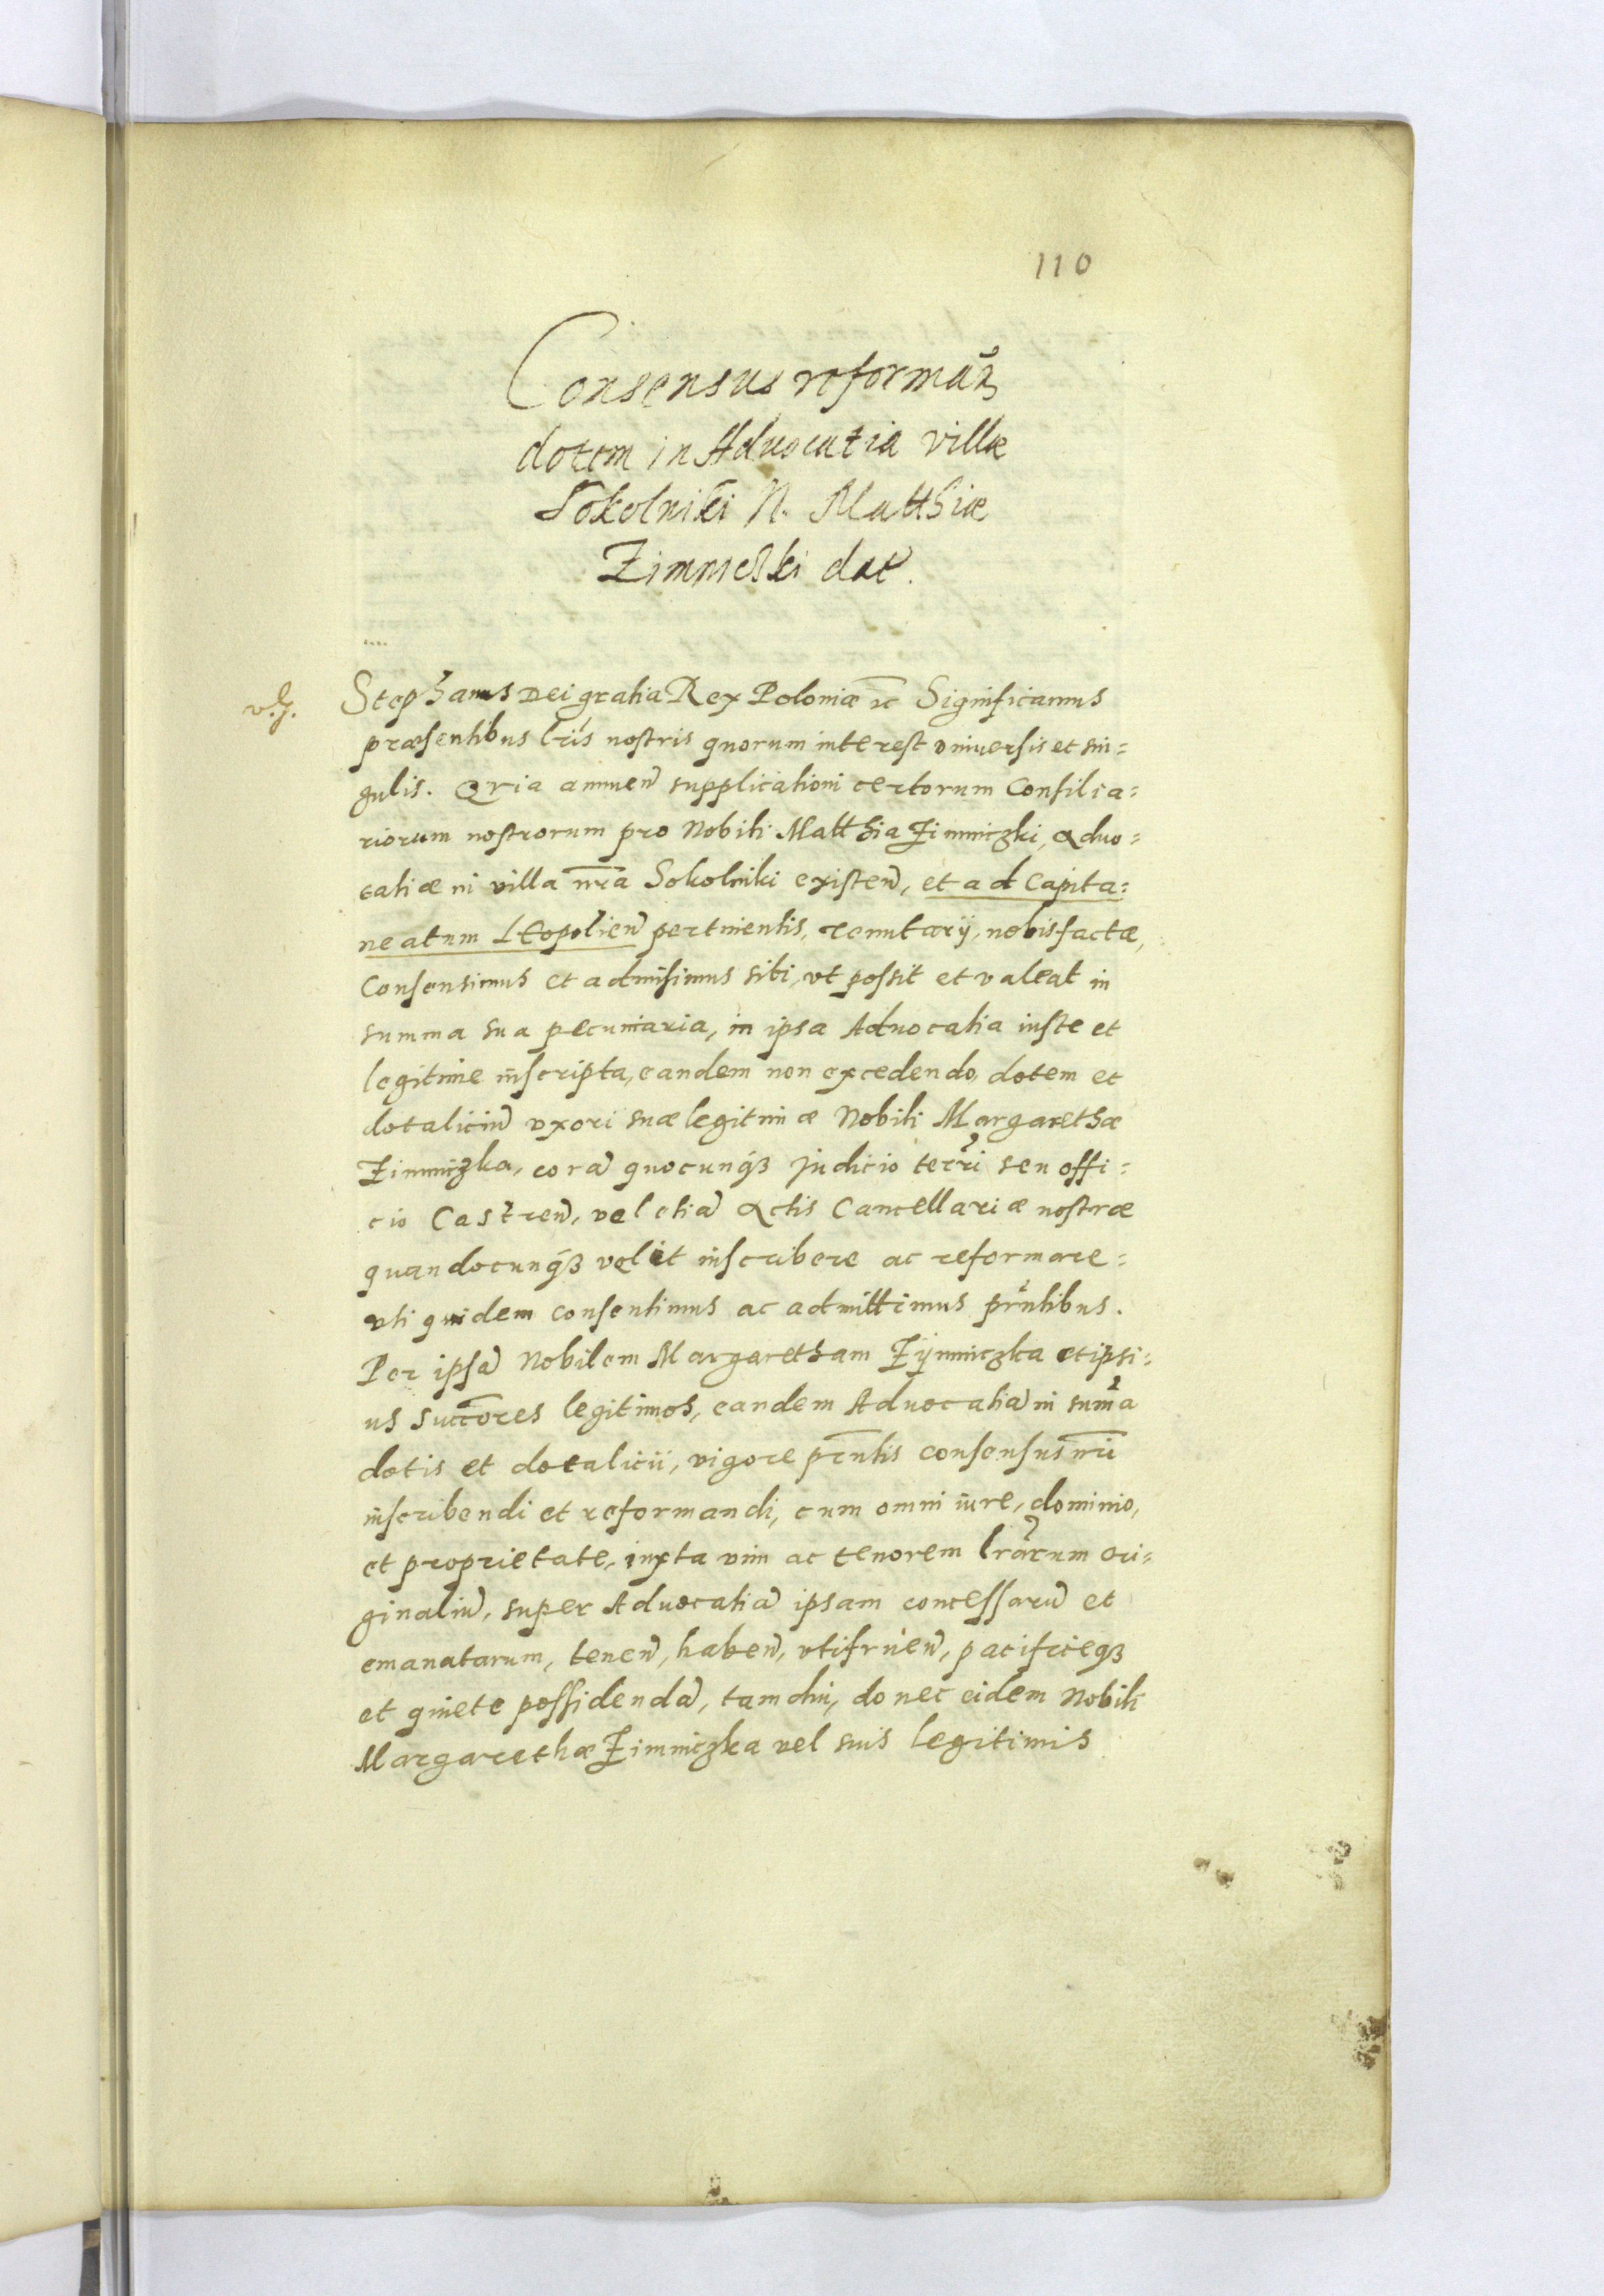 110
Consensus reforman̄
dotem in Aduocatia villæ
Sokolniki N. Matthiæ
Zimniczki dat.
Stephanus Dei gratia Rex Poloniæ etc Significamus
præsentibus lr̄is nostris quorum interest vniuersis et sin=
gulis. Quia annuen̄ supplicationi certorum Consilia=
riorum nostrorum pro Nobili Matthia Zimniczki, Aduo=
catiæ in villa nr̄a Sokolniki existen̄, et ad Capita=
neatum Leopolien̄ pertinentis, tenutarij, nobis factæ,
Consensimus et admisimus sibi, vt possit et valeat in
summa sua pecuniaria, in ipsa Aduocatia iuste et
legitime inscripta, eandem non excedendo, dotem et
dotaliciū vxori suæ legitimæ Nobili Margarethæ
Zimniczka, corā quocunq́ȝ Judicio terr̄i seu offi=
cio Castren̄, vel etiā Actis Cancellariæ nostræ
quandocunq́ȝ velit inscribere ac reformare=
vti quidem consentimus ac admittimus pn̄tibus.
Per ipsā Nobilem Margaretham Zijmniczka et ipsi=
us succōres legitimos, eandem Aduocatiā in sum̄a
dotis et dotalicii, vigore pn̄tis consensus nr̄i
inscribendi et reformandi, cum omni iure, dominio,
et proprietate, iuxta vim ac tenorem lrārum ori=
ginaliū, super Aduocatiā ipsam concessarū et
emanatarum, tenen̄, haben̄, vtifruen̄, pacificeqȝ
et quiete possidendā, tamdiu, donec eidem Nobili
Margarethæ Zimniczka vel suis legitimis